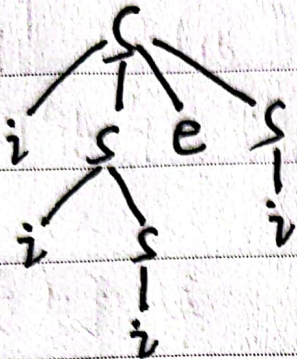 S
i S e S
i S i
i